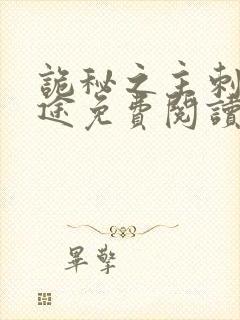 詭秘之主刺
途免費閱讀
畢擎